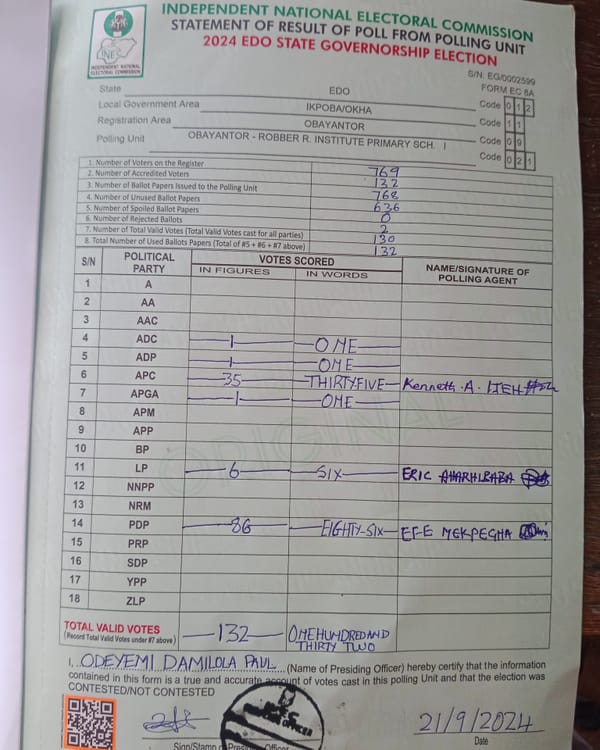 INDEPENDENT NATIONAL ELECTORAL COMMISSION
STATEMENT OF RESULT OF POLL FROM POLLING UNIT
2024 EDO STATE GOVERNORSHIP ELECTION
INEC
INDEPENDENT NATIONAL
ELECTORAL COMMISSION
S/N: EG/0002599
FORM EC 8A
State EDO Code 0 1 2
Local Government Area IKPOBA/OKHA Code 1 1
Registration Area OBAYANTOR Code 0 9
Polling Unit OBAYANTOR - ROBBER R. INSTITUTE PRIMARY SCH. I Code 0 2 1
1. Number of Voters on the Register 769
2. Number of Accredited Voters 132
3. Number of Ballot Papers Issued to the Polling Unit 768
4. Number of Unused Ballot Papers 636
5. Number of Spoiled Ballot Papers 0
6. Number of Rejected Ballots 2
7. Number of Total Valid Votes (Total Valid Votes cast for all parties) 130
8. Total Number of Used Ballots Papers (Total of #5 + #6 + #7 above) 132
S/N POLITICAL PARTY VOTES SCORED NAME/SIGNATURE OF POLLING AGENT
IN FIGURES IN WORDS
1 A
2 AA
3 AAC
4 ADC 1 ONE
5 ADP 1 ONE
6 APC 35 THIRTYFIVE Kenneth. A. ITEH
7 APGA 1 ONE
8 APM
9 APP
10 BP
11 LP 6 SIX ERIC AHARHIBABA
12 NNPP
13 NRM
14 PDP 86 EIGHTY-SIX EFE MEKPEGHA
15 PRP
16 SDP
17 YPP
18 ZLP
ORIGINAL
TOTAL VALID VOTES 132 ONE HUNDRED AND
(Record Total Valid Votes under #7 above) THIRTY TWO
I, ODEYEMI DAMILOLA PAUL (Name of Presiding Officer) hereby certify that the information
contained in this form is a true and accurate account of votes cast in this polling Unit and that the election was
CONTESTED/NOT CONTESTED
21/9/2024
Sign/Stamp of Presiding Officer Date